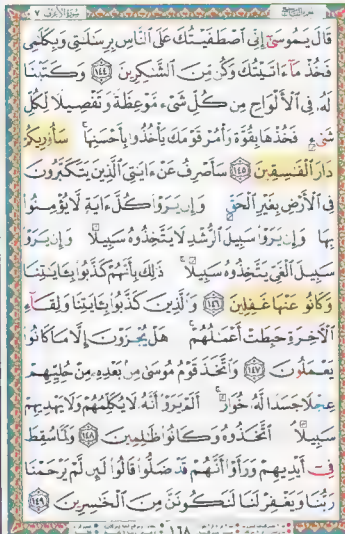 سورة الأعراف ٧
قَالَ يَـٰمُوسَىٰٓ إِنِّى ٱصْطَفَيْتُكَ عَلَى ٱلنَّاسِ بِرِسَـٰلَـٰتِى وَبِكَلَـٰمِى
فَخُذْ مَآ ءَاتَيْتُكَ وَكُن مِّنَ ٱلشَّـٰكِرِينَ ١٤٤ وَكَتَبْنَا
لَهُۥ فِى ٱلْأَلْوَاحِ مِن كُلِّ شَىْءٍ مَّوْعِظَةً وَتَفْصِيلًا لِّكُلِّ
شَىْءٍ فَخُذْهَا بِقُوَّةٍ وَأْمُرْ قَوْمَكَ يَأْخُذُوا۟ بِأَحْسَنِهَا سَأُو۟رِيكُمْ
دَارَ ٱلْفَـٰسِقِينَ ١٤٥ سَأَصْرِفُ عَنْ ءَايَـٰتِىَ ٱلَّذِينَ يَتَكَبَّرُونَ
فِى ٱلْأَرْضِ بِغَيْرِ ٱلْحَقِّ وَإِن يَرَوْا۟ كُلَّ ءَايَةٍ لَّا يُؤْمِنُوا۟
بِهَا وَإِن يَرَوْا۟ سَبِيلَ ٱلرُّشْدِ لَا يَتَّخِذُوهُ سَبِيلًا وَإِن يَرَوْا۟
سَبِيلَ ٱلْغَىِّ يَتَّخِذُوهُ سَبِيلًا ذَٰلِكَ بِأَنَّهُمْ كَذَّبُوا۟ بِـَٔايَـٰتِنَا
وَكَانُوا۟ عَنْهَا غَـٰفِلِينَ ١٤٦ وَٱلَّذِينَ كَذَّبُوا۟ بِـَٔايَـٰتِنَا وَلِقَآءِ
ٱلْـَٔاخِرَةِ حَبِطَتْ أَعْمَـٰلُهُمْ هَلْ يُجْزَوْنَ إِلَّا مَا كَانُوا۟
يَعْمَلُونَ ١٤٧ وَٱتَّخَذَ قَوْمُ مُوسَىٰ مِنۢ بَعْدِهِۦ مِنْ حُلِيِّهِمْ
عِجْلًا جَسَدًا لَّهُۥ خُوَارٌ أَلَمْ يَرَوْا۟ أَنَّهُۥ لَا يُكَلِّمُهُمْ وَلَا يَهْدِيهِمْ
سَبِيلًا ٱتَّخَذُوهُ وَكَانُوا۟ ظَـٰلِمِينَ ١٤٨ وَلَمَّا سُقِطَ
فِىٓ أَيْدِيهِمْ وَرَأَوْا۟ أَنَّهُمْ قَدْ ضَلُّوا۟ قَالُوا۟ لَئِن لَّمْ يَرْحَمْنَا
رَبُّنَا وَيَغْفِرْ لَنَا لَنَكُونَنَّ مِنَ ٱلْخَـٰسِرِينَ ١٤٩
١٦٨